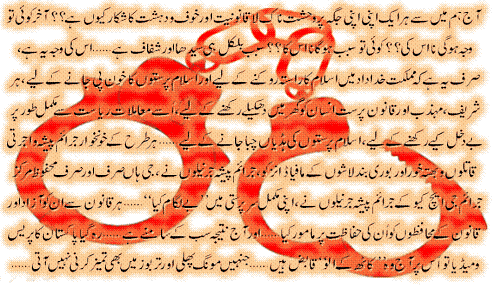 آج ہم میں سے ہر ایک اپنی اپنی جگہ پر وحشت ناک لاقانونیت اور خوف و دہشت کا شکار کیوں ہے؟؟؟ آخر کوئی تو
وجہ ہوگی نا اس کی؟؟؟ کوئی تو سبب ہوگا نا اس کا؟؟؟ سبب بالکل ہی سیدھا اور شفاف ہے ..... اس کی وجہ یہ ہے،
صرف یہ ہے کہ مملکت خداداد میں اسلام کا راستہ روکنے کے لیے اور اسلام پرستوں کا خون پی جانے کے لیے، ہر
شریف، مہذب اور قانون پرست انسان کو گھر میں دھکیلے رکھنے کے لیے، اسے معاملات ریاست سے مکمل طور پر
بے دخل کیے رکھنے کے لیے، اسلام پرستوں کی ہڈیاں چبا جانے کے لیے ..... ہر طرح کے خونخوار جرائم پیشہ و اجرتی
قاتلوں و بھتہ خور اور بوری بند لاشوں کے مافیا ڈانز کو، جرائم پیشہ جرنیلوں نے، جی ہاں صرف اور صرف محفوظ مرکز
جرائم جی ایچ کیو کے جرائم پیشہ جرنیلوں نے، اپنی مکمل سرپرستی میں "بے لگام کیا" ..... ہر قانون سے ان کو آزاد اور
قانون کے محافظوں کو ان کی حفاظت پر مامور کیا ..... اور آج نتیجہ سب کے سامنے ہے ..... رہ گیا پاکستان کا پریس
و میڈیا تو اس پر آج وہ "کاٹھ کے الو" قابض ہیں ..... جنہیں مونگ پھلی اور تربوز میں بھی تمیز کرنی نہیں آتی .....